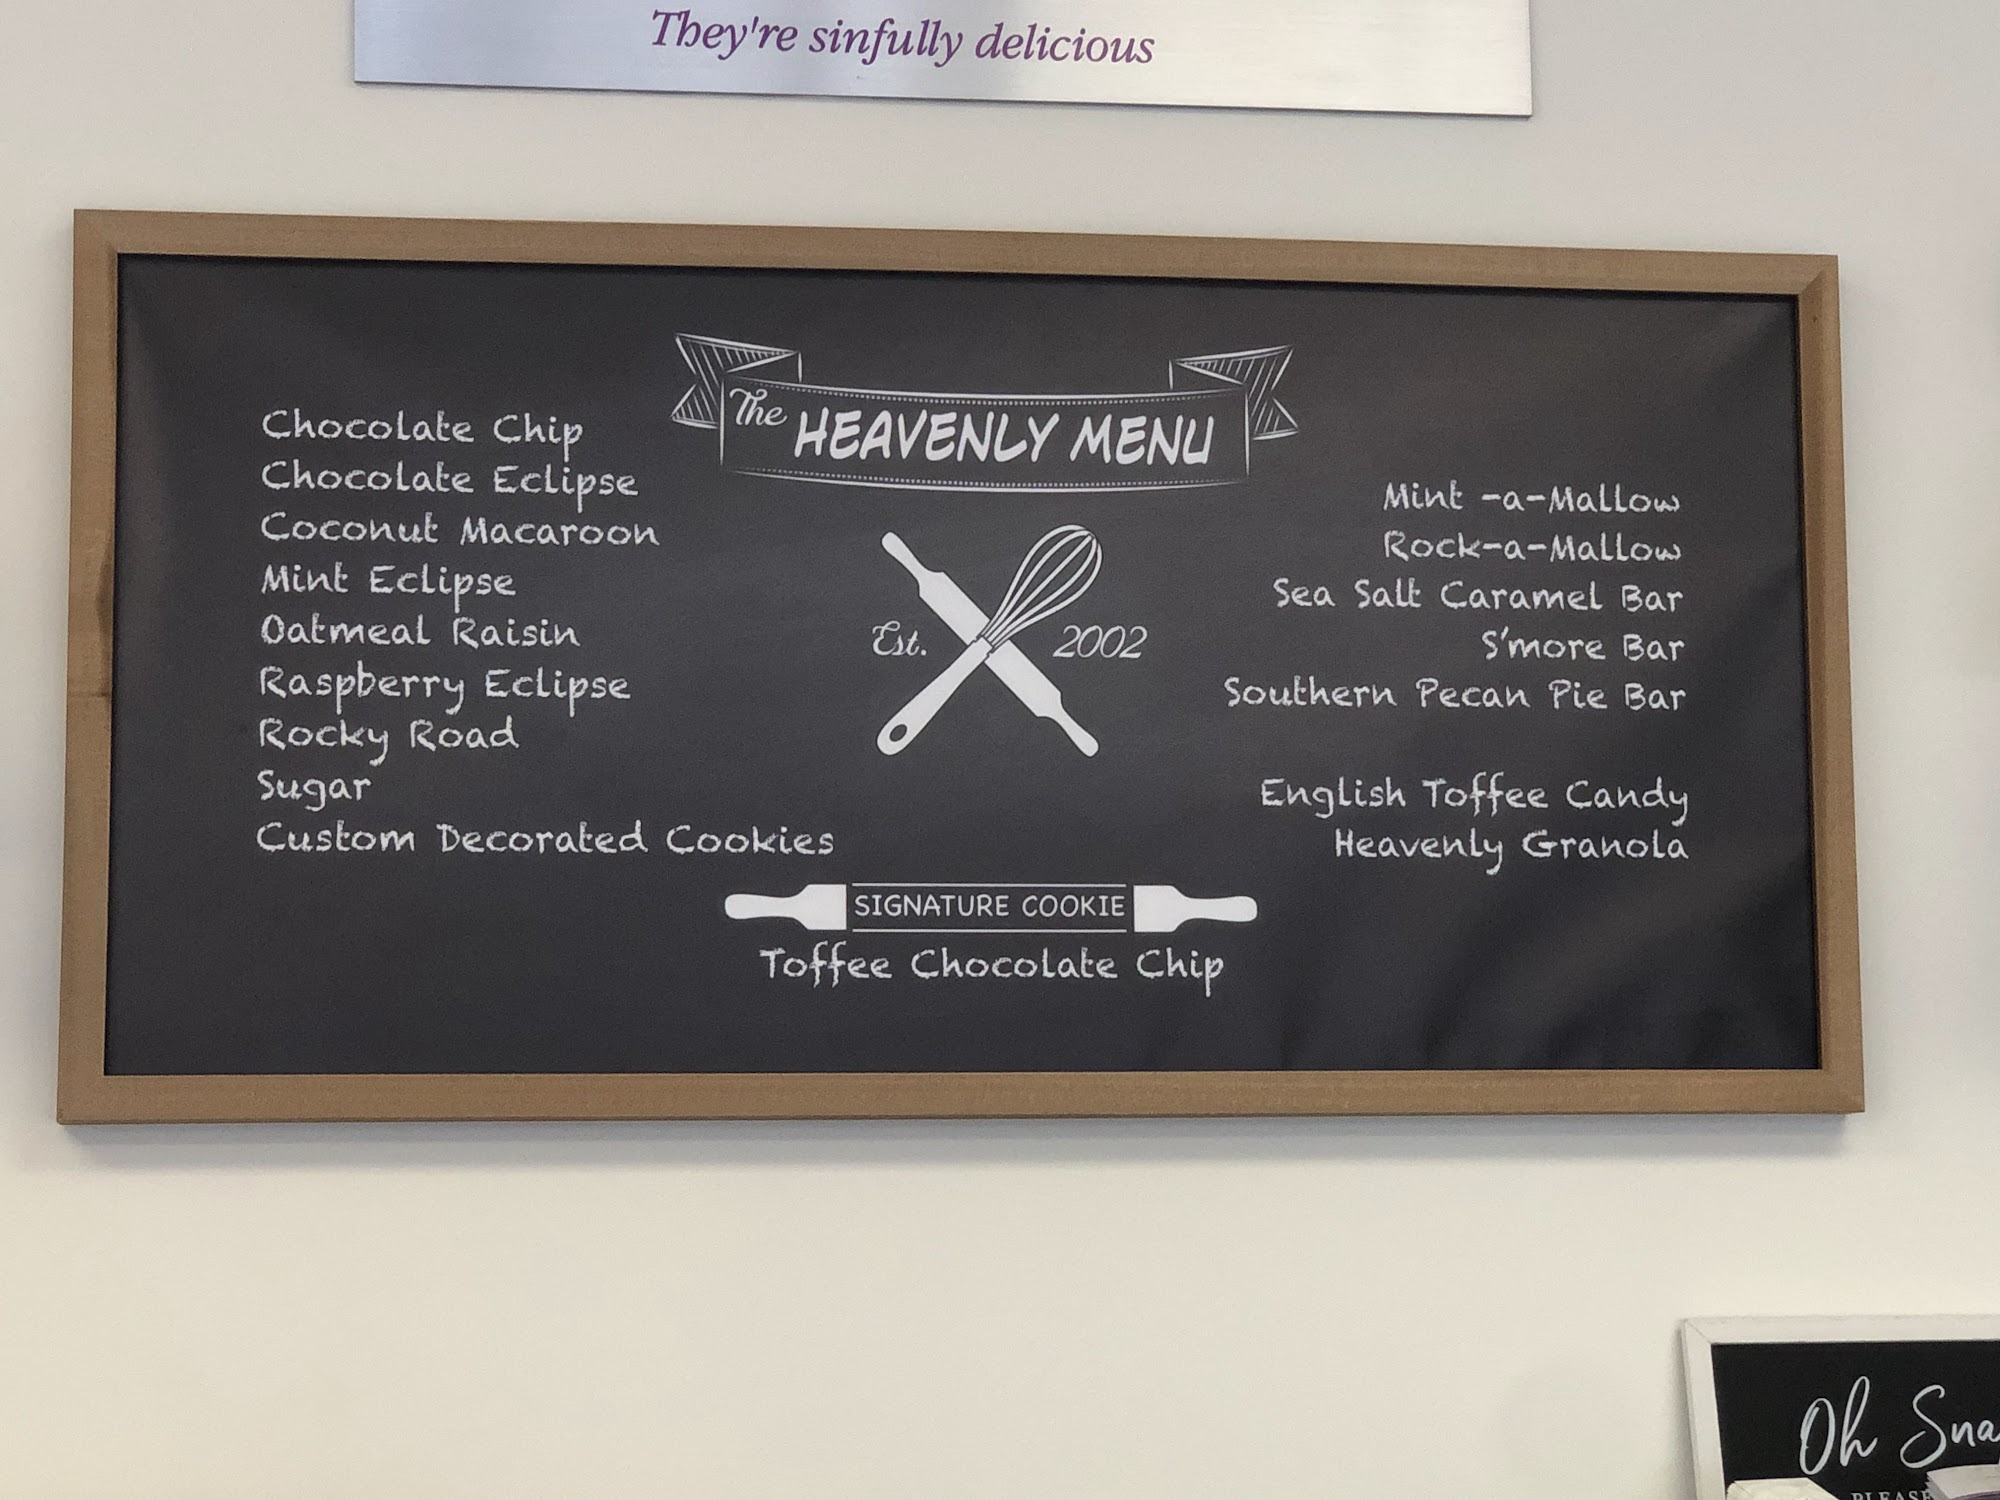 They're sinfully delicious
The HEAVENLY MENU
Chocolate Chip
Chocolate Eclipse
Coconut Macaroon
Mint Eclipse
Oatmeal Raisin
Raspberry Eclipse
Rocky Road
Sugar
Custom Decorated Cookies
Est. 2002
Mint -a-Mallow
Rock-a-Mallow
Sea Salt Caramel Bar
S'more Bar
Southern Pecan Pie Bar
English Toffee Candy
Heavenly Granola
SIGNATURE COOKIE
Toffee Chocolate Chip
Oh Sna
PLEASE